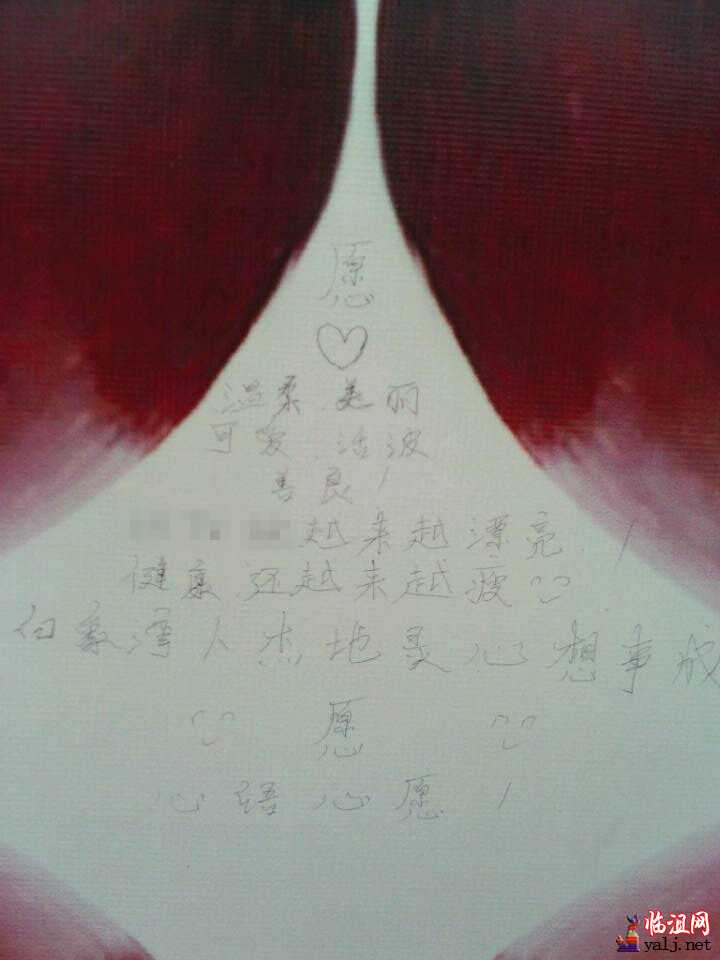 愿
♡
温柔、美丽
可爱、活波
善良!
越来越漂亮!
健康.还越来越瘦
向家湾人杰地灵心想事成
愿
心语心愿!
临沮网
yalj.net